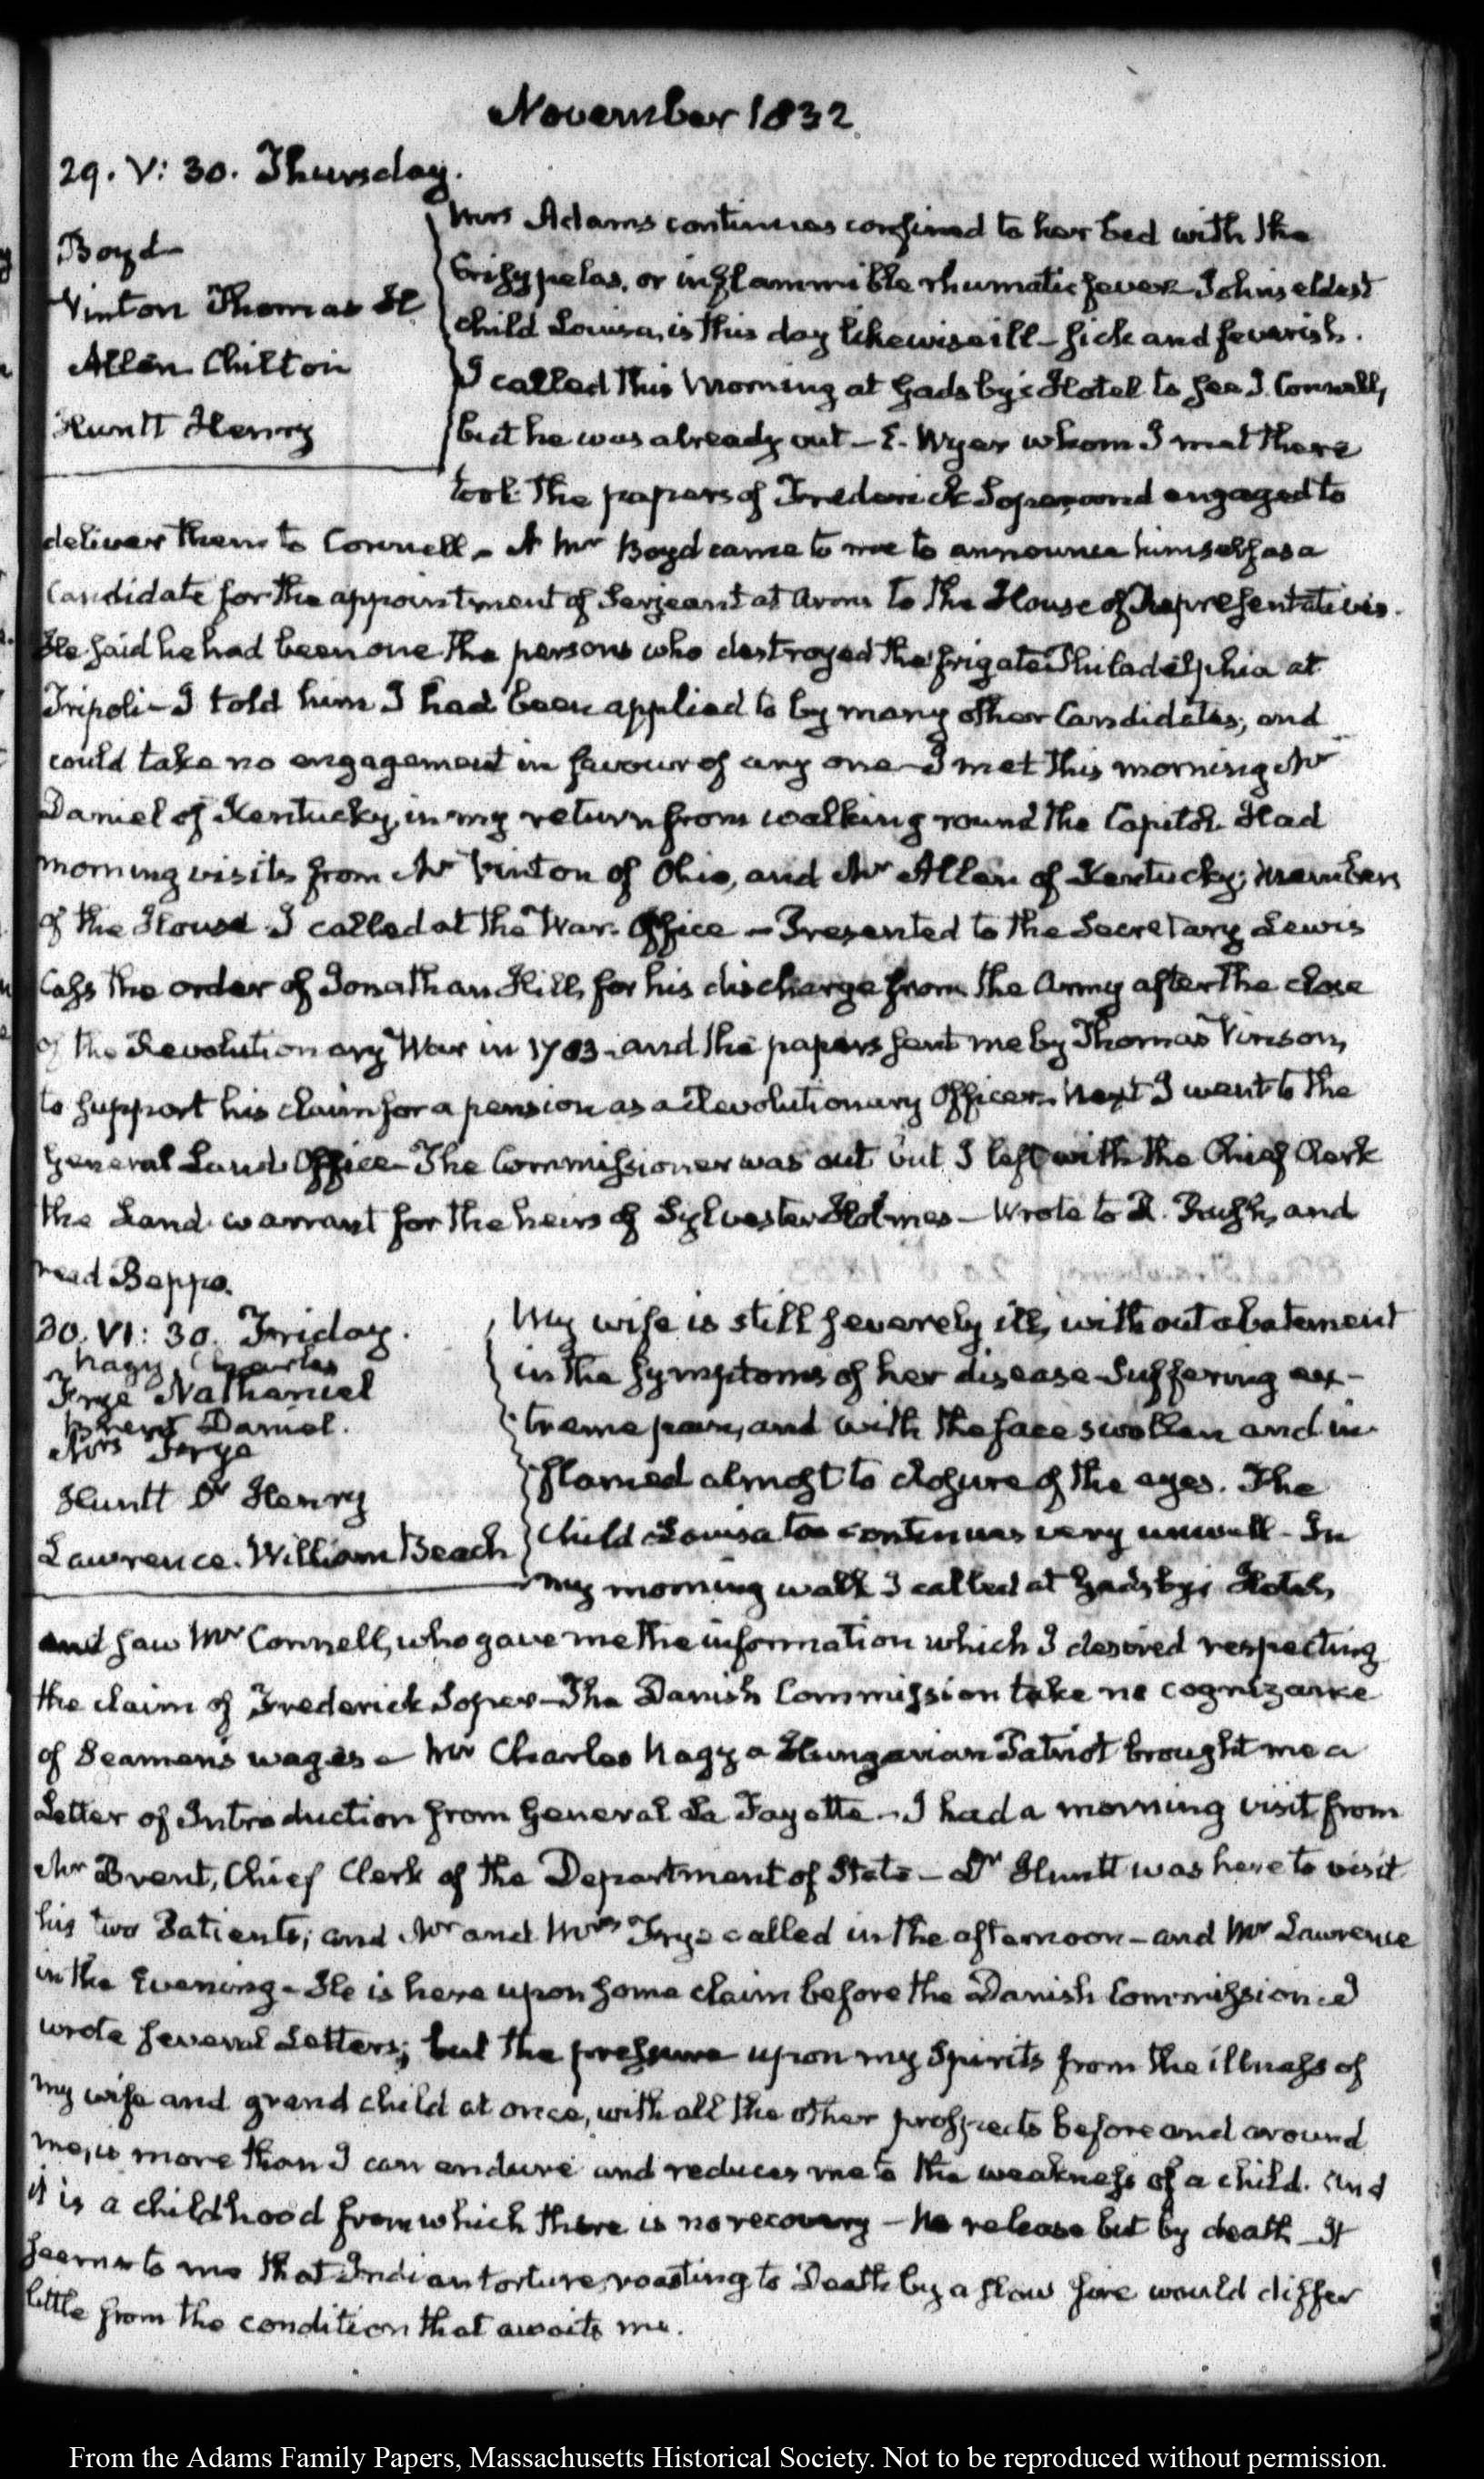 November 1832
29. V: 30. Thursday.
Boyd
Vinton Thomas H
Allen Chilton
Huntt Henry
Mrs Adams continues confined to her bed with the
Erisypelas, or inflammible rhumatic fever. Johns eldest
child Louisa, is this day likewise ill - sick and feverish.
I called this morning at Gadsby's Hotel to see J. Connell,
but he was already out - E. Wyer whom I met there
took the papers of Frederick Soper, and engaged to
deliver them to Connell - A Mr Boyd came to me to announce himself as a
Candidate for the appointment of Serjeant at Arms to the House of Representatives.
He said he had been one the persons who destroyed the frigate Philadelphia at
Tripoli - I told him I had been applied to by many other Candidates, and
could take no engagement in favour of any one - I met this morning Mr
Daniel of Kentucky, in my return from walking round the Capitol. Had
morning visits from Mr Vinton of Ohio, and Mr Allen of Kentucky; members
of the House. I called at the War Office - Presented to the Secretary Lewis
Cass the order of Jonathan Hill, for his discharge from the Army after the close
of the Revolutionary War in 1783 - and the papers sent me by Thomas Vinson,
to support his claim for a pension as a Revolutionary Officer. Next I went to the
General Land Office - The Commissioner was out but I left with the Chief Clerk
the Land warrant for the heirs of Sylvester Holmes - Wrote to R. Rush, and
read Beppo.
30. VI: 30. Friday.
Nagy Charles
Frye Nathaniel
Brent Daniel.
Mrs Frye
Huntt Dr Henry
Lawrence. William Beach
My wife is still severely ill, without abatement
in the symptoms of her disease. Suffering ex-
treme pain, and with the face swollen and in-
flamed almost to closure of the eyes. The
child Louisa too continues very unwell - In
my morning walk I called at Gadsby's Hotel,
and saw Mr Connell, who gave me the information which I desired respecting
the claim of Frederick Soper - The Danish Commission take no cognizance
of Seamen's wages - Mr Charles Nagy a Hungarian Patriot brought me a
Letter of Introduction from General La Fayette - I had a morning visit from
Mr Brent, Chief Clerk of the Department of State - Dr Huntt was here to visit
his two Patients; and Mr and Mrs Frye called in the afternoon - and Mr Lawrence
in the Evening - He is here upon some claim before the Danish Commission. I
wrote several Letters; but the pressure upon my Spirits from the illness of
my wife and grand child at once, with all the other prospects before and around
me, is more than I can endure and reduces me to the weakness of a child. And
it is a childhood from which there is no recovery - No release but by death - It
seems to me that Indian torture, roasting to Death by a slow fire would differ
little from the condition that awaits me.
From the Adams Family Papers, Massachusetts Historical Society. Not to be reproduced without permission.